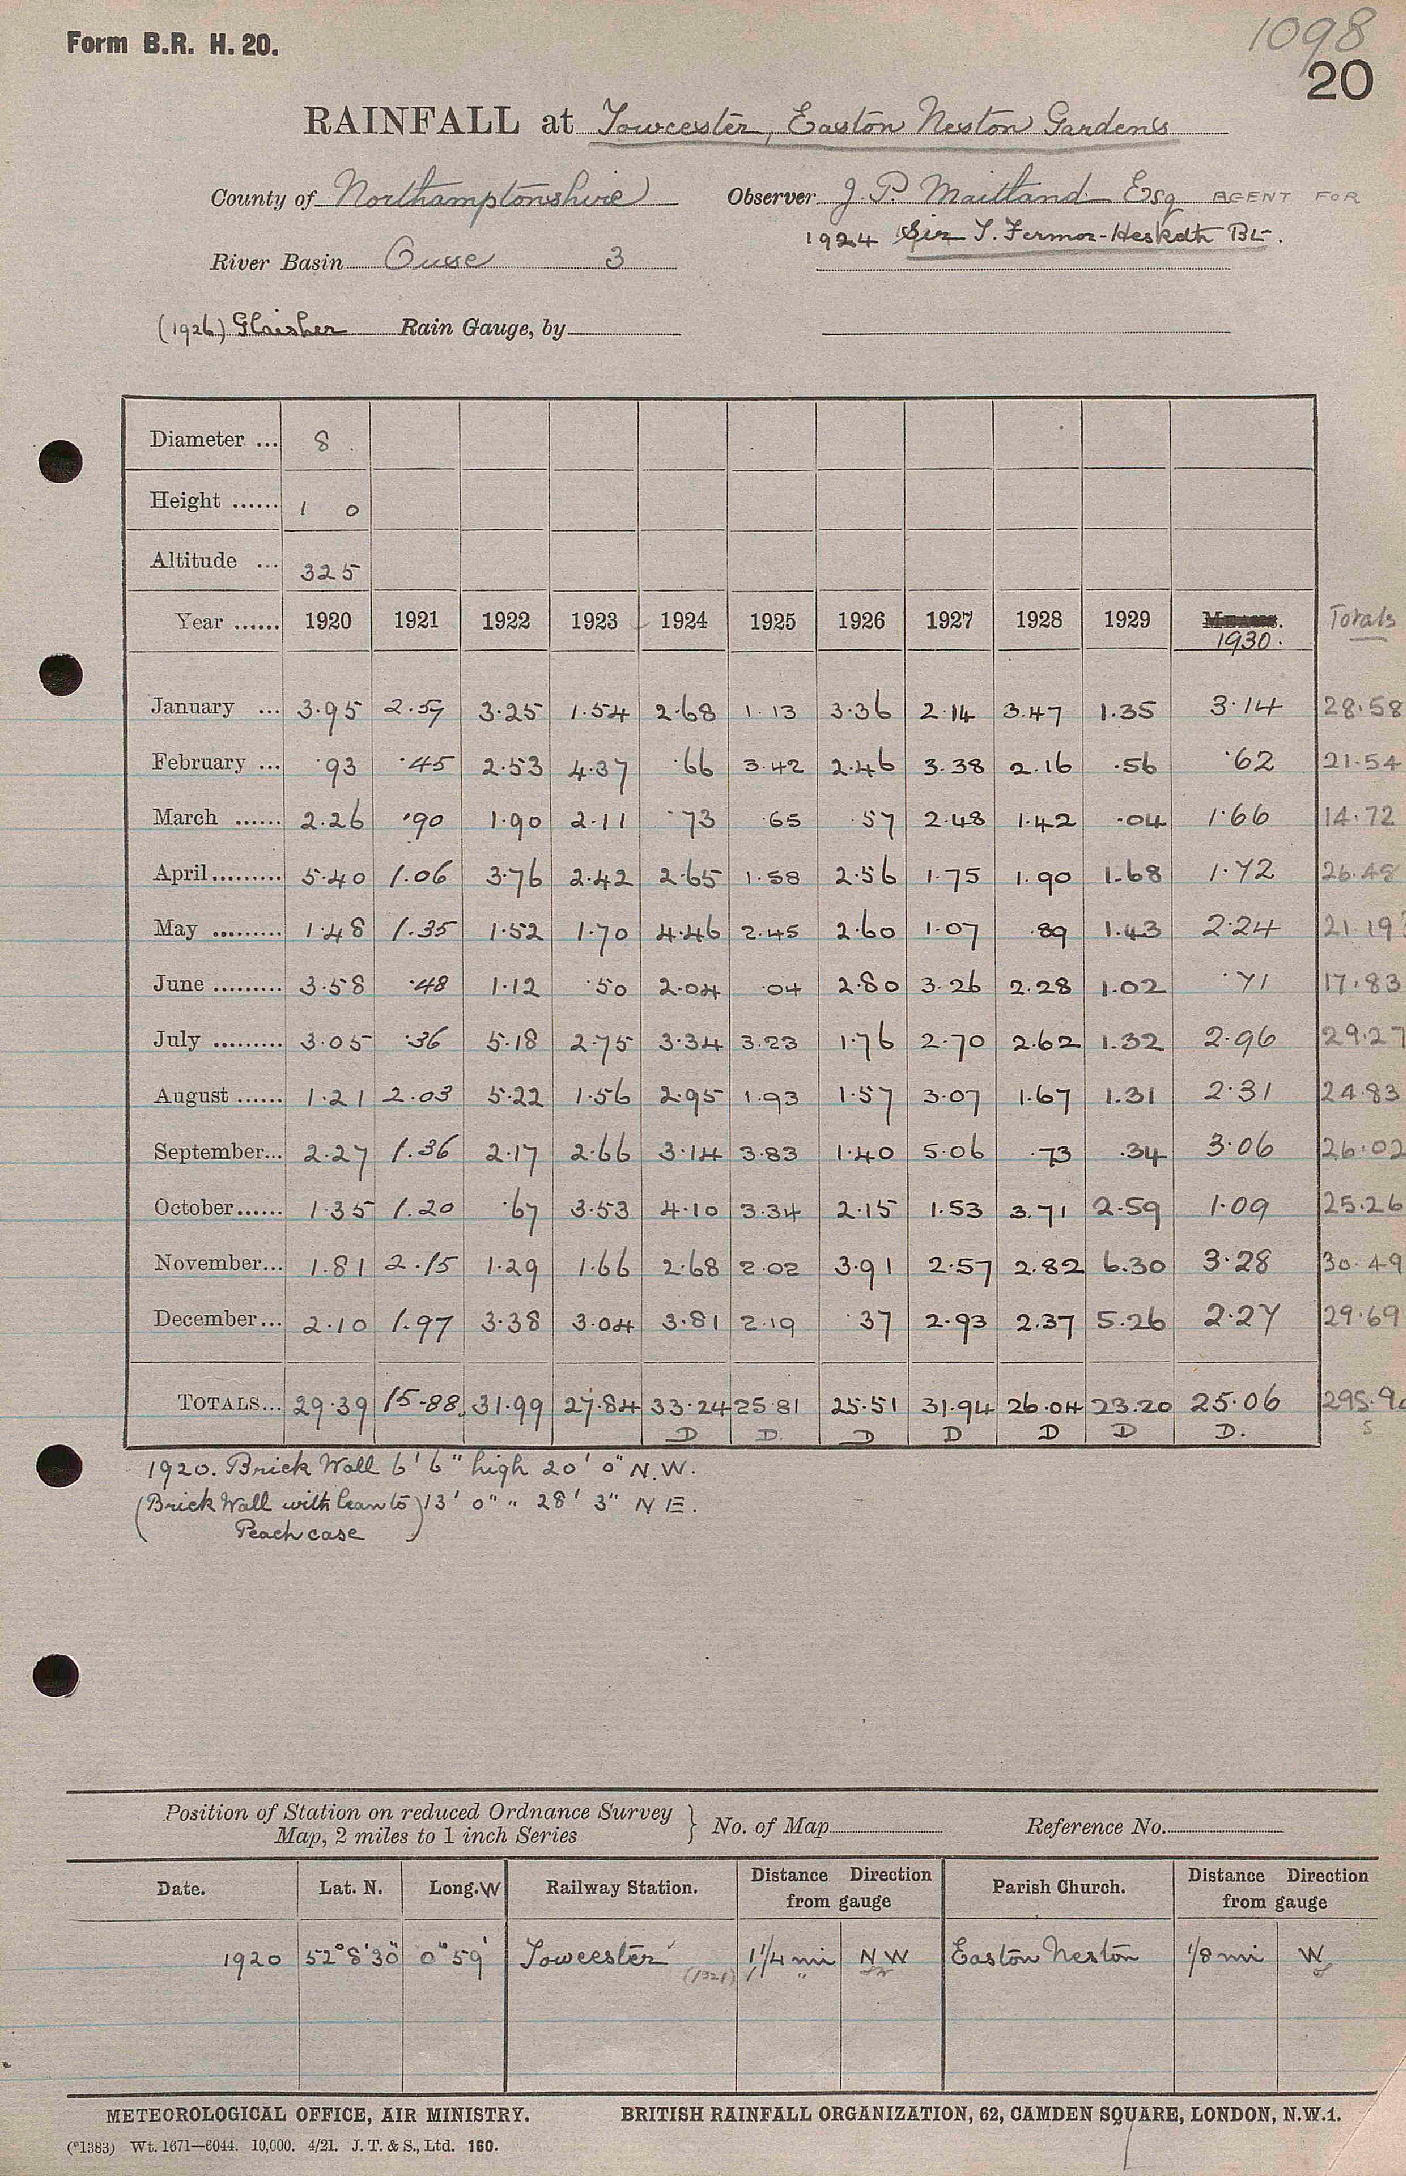 Form B.R. H. 20.
1098
20
RAINFALL at Towcester, Easton Neston Gardens
County of Northamptonshire Observer J. P. Maitland Esq AGENT FOR
1924 Sir T. Fermor-Hesketh Bt.
River Basin Ouse 3
(1926) Glaisher Rain Gauge, by
Diameter ... 8
Height ...... 1 0
Altitude ... 325
Year ...... 1920 1921 1922 1923 1924 1925 1926 1927 1928 1929 1930. Totals
January ... 3.95 2.57 3.25 1.54 2.68 1.13 3.36 2.14 3.47 1.35 3.14 28.58
February ... .93 .45 2.53 4.37 .66 3.42 2.46 3.38 2.16 .56 .62 21.54
March ...... 2.26 .90 1.90 2.11 .73 .65 .57 2.48 1.42 .04 1.66 14.72
April......... 5.40 1.06 3.76 2.42 2.65 1.58 2.56 1.75 1.90 1.68 1.72 26.48
May ......... 1.48 1.35 1.52 1.70 4.46 2.45 2.60 1.07 .89 1.43 2.24 21.19
June ......... 3.58 .48 1.12 .50 2.04 .04 2.80 3.26 2.28 1.02 .71 17.83
July ......... 3.05 .36 5.18 2.75 3.34 3.23 1.76 2.70 2.62 1.32 2.96 29.27
August ...... 1.21 2.03 5.22 1.56 2.95 1.93 1.57 3.07 1.67 1.31 2.31 24.83
September... 2.27 1.36 2.17 2.66 3.14 3.83 1.40 5.06 .73 .34 3.06 26.02
October...... 1.35 1.20 .67 3.53 4.10 3.34 2.15 1.53 3.71 2.59 1.09 25.26
November... 1.81 2.15 1.29 1.66 2.68 2.02 3.91 2.57 2.82 6.30 3.28 30.49
December... 2.10 1.97 3.38 3.04 3.81 2.19 .37 2.93 2.37 5.26 2.27 29.69
TOTALS... 29.39 15.88 31.99 27.84 33.24 25.81 25.51 31.94 26.04 23.20 25.06
D D. D D D D D.
1920. Brick Wall 6' 6" high 20' 0" N.W.
(Brick Wall with lean to) 13' 0" " 28' 3" N E.
Peach case
Position of Station on reduced Ordnance Survey
Map, 2 miles to 1 inch Series } No. of Map Reference No.
Date. Lat. N. Long. W Railway Station. Distance Direction from gauge Parish Church. Distance Direction from gauge
1920 52° 8' 30" 0° 59' Towcester 1 1/4 mi N W Easton Neston 1/8 mi W
METEOROLOGICAL OFFICE, AIR MINISTRY. BRITISH RAINFALL ORGANIZATION, 62, CAMDEN SQUARE, LONDON, N.W.1.
(*1383) Wt. 1671—6044. 10,000. 4/21. J. T. & S., Ltd. 160.